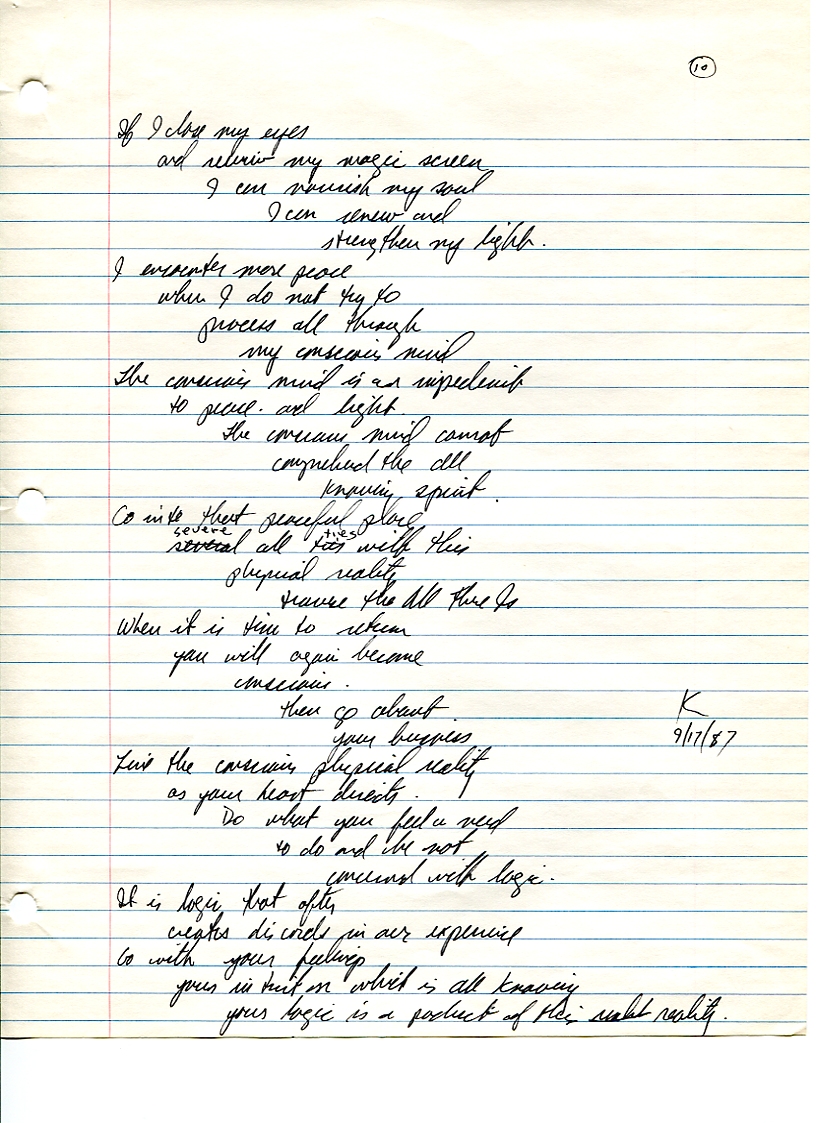 10
If I close my eyes
and review my magic screen
I can nourish my soul
I can renew and
strengthen my light.
I encounter more peace
when I do not try to
process all through
my conscious mind
The conscious mind is an impediment
to peace. and light.
The conscious mind cannot
comprehend the all
knowing spirit.
Go into that peaceful place
severe ties
several all ties with this
physical reality
the All There Is
When it is time to return
you will again become
conscious.
then go about
your business
K
9/17/87
Live the conscious physical reality
as your heart directs.
Do what you feel a need
to do and be not
concerned with logic.
It is logic that often
creates discords in our experience
Go with your feelings
your intuition which is all knowing
your logic is a product of this reality.